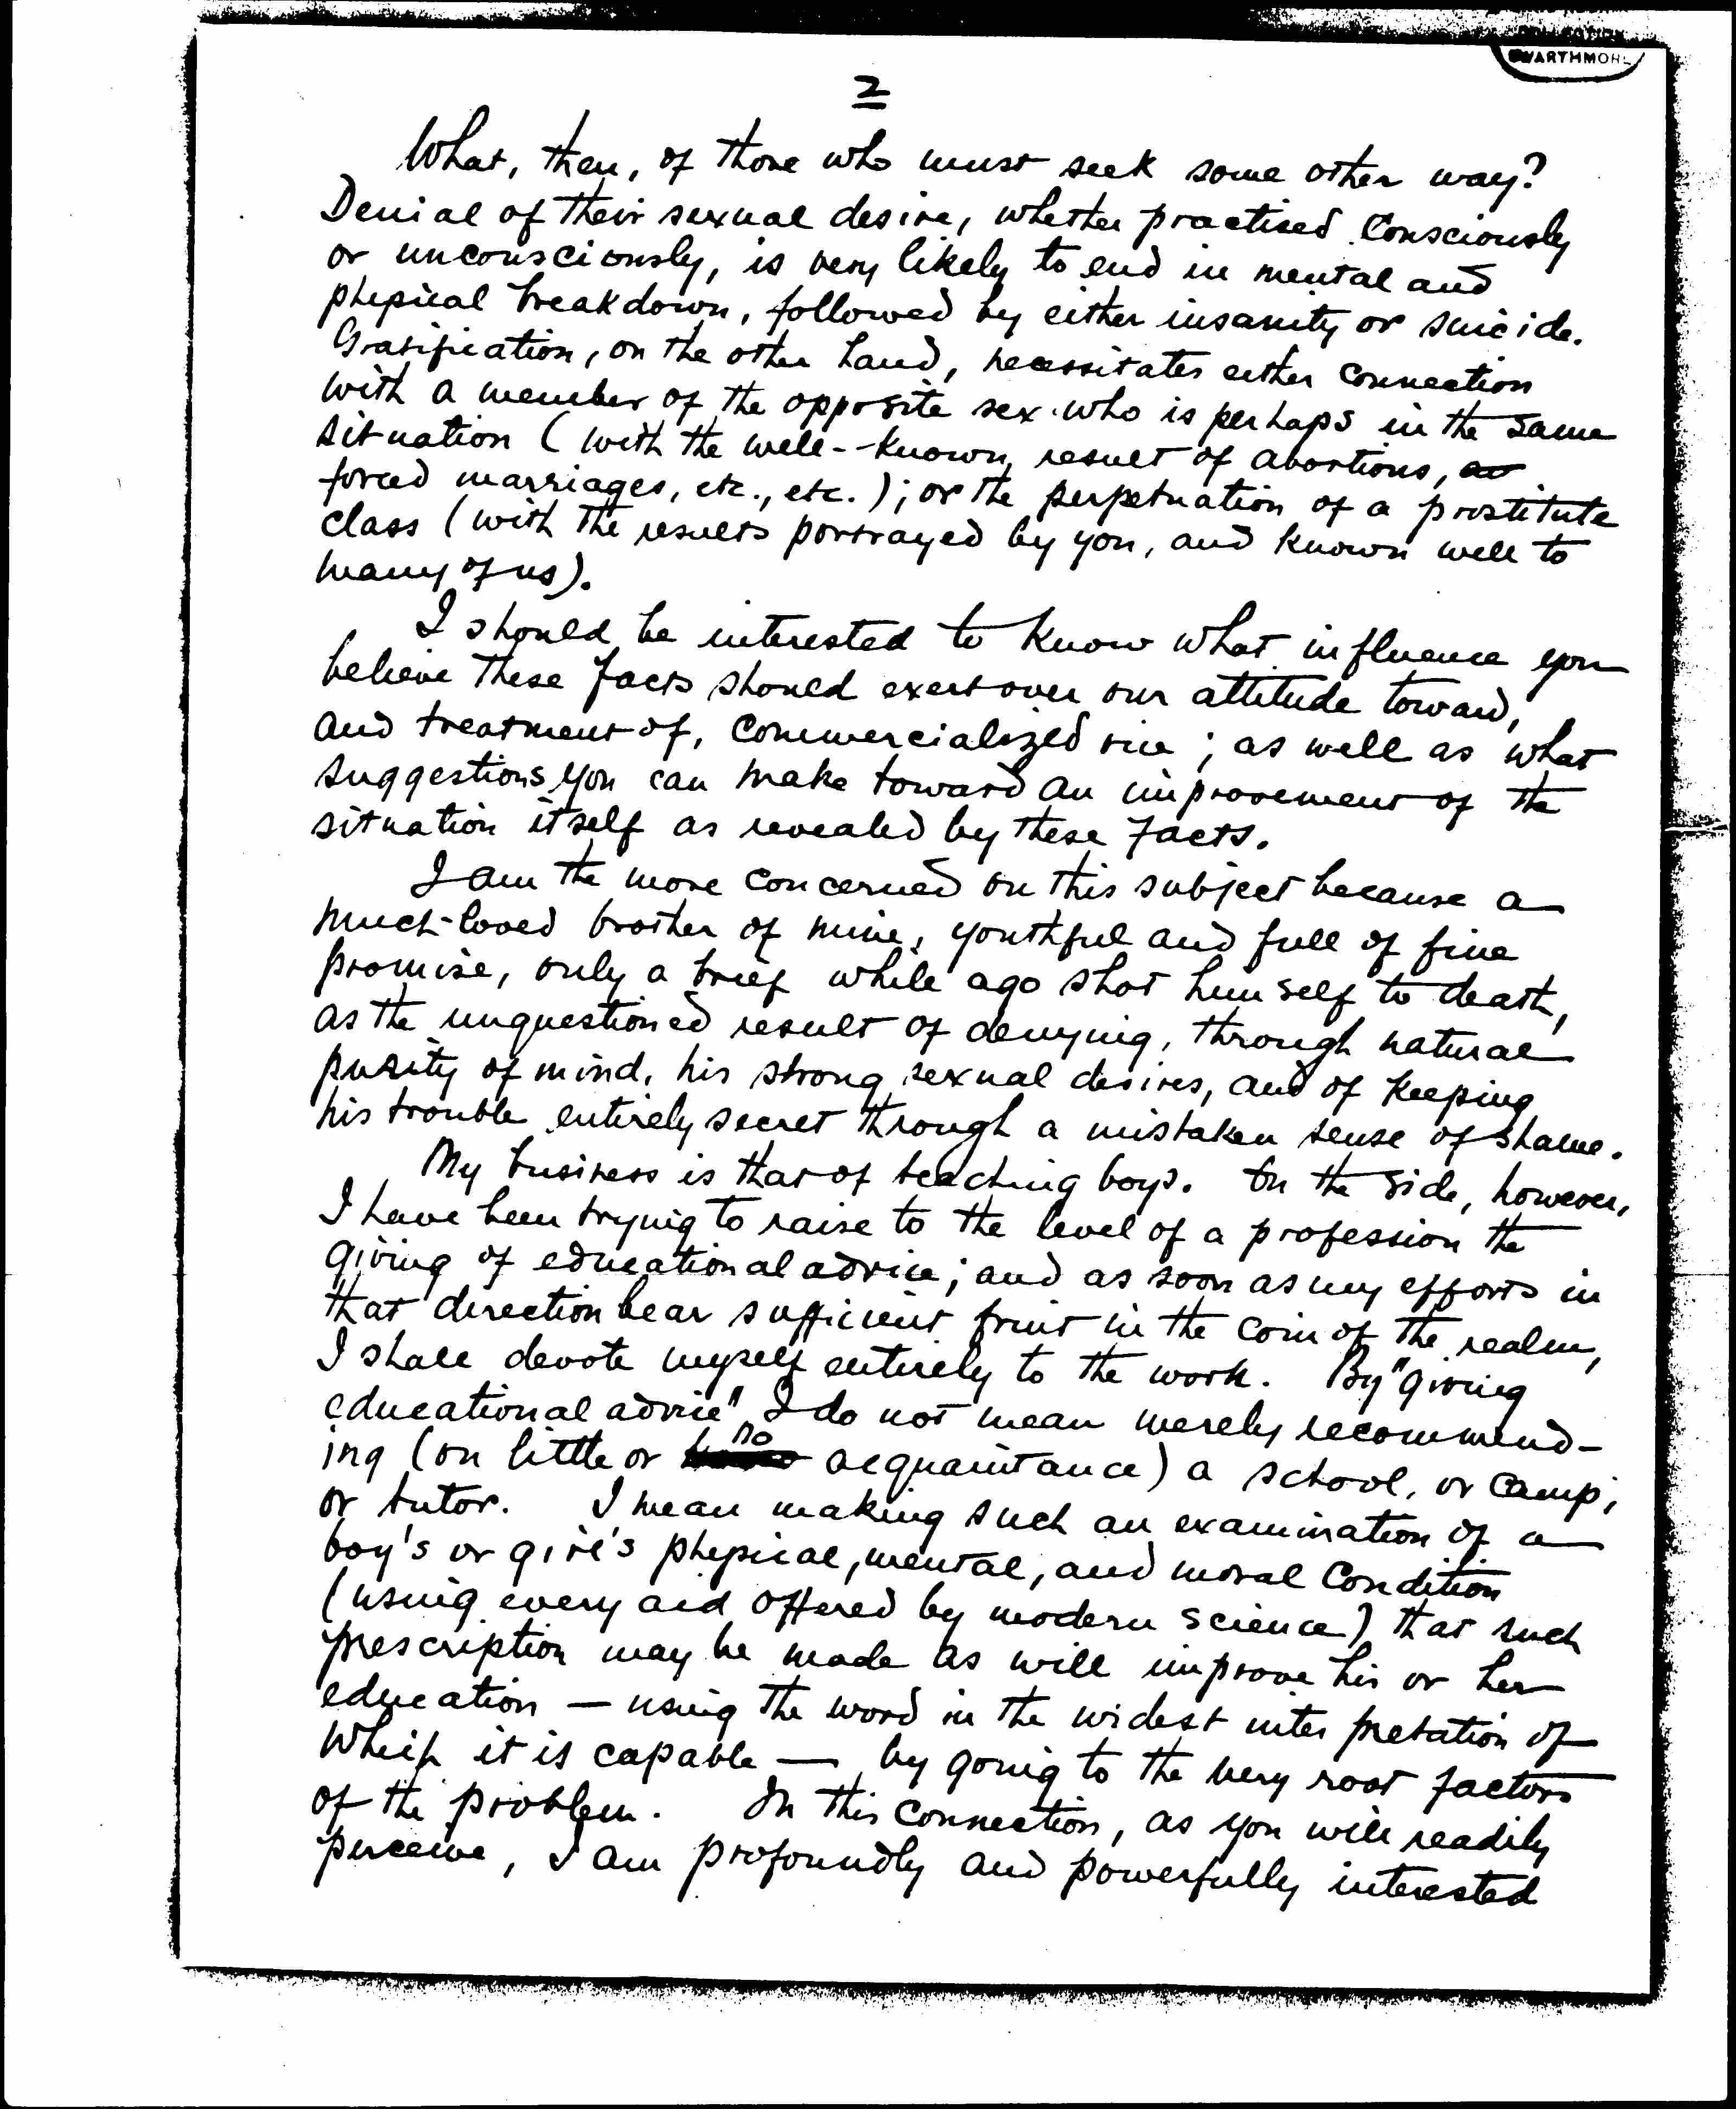 SWARTHMORE
2
What, then, of those who must seek some other way?
Denial of their sexual desire, whether practised consciously
or unconsciously, is very likely to end in mental and
physical breakdown, followed by either insanity or suicide.
Gratification, on the other hand, necessitates either connection
with a member of the opposite sex who is perhaps in the same
situation (with the well-known result of abortions,
forced marriages, etc., etc.); or the perpetuation of a prostitute
class (with the results portrayed by you, and known well to
many of us).
I should be interested to know what influence you
believe these facts should exert over our attitude toward,
and treatment of, commercialized vice; as well as what
suggestions you can make toward an improvement of the
situation itself as revealed by these facts.
I am the more concerned on this subject because a
much-loved brother of mine, youthful and full of fine
promise, only a brief while ago shot himself to death,
as the unquestioned result of denying, through natural
purity of mind, his strong sexual desires, and of keeping
his trouble entirely secret through a mistaken sense of shame.
My business is that of teaching boys. On the side, however,
I have been trying to raise to the level of a profession the
giving of educational advice; and as soon as my efforts in
that direction bear sufficient fruit in the coin of the realm,
I shall devote myself entirely to the work. By "giving
educational advice" I do not mean merely recommend-
ing (on little or no acquaintance) a school, or camp,
or tutor. I mean making such an examination of a
boy's or girl's physical, mental, and moral condition
(using every aid offered by modern science) that such
prescription may be made as will improve his or her
education — using the word in the widest interpretation of
which it is capable — by going to the very root factors
of the problem. In this connection, as you will readily
perceive, I am profoundly and powerfully interested